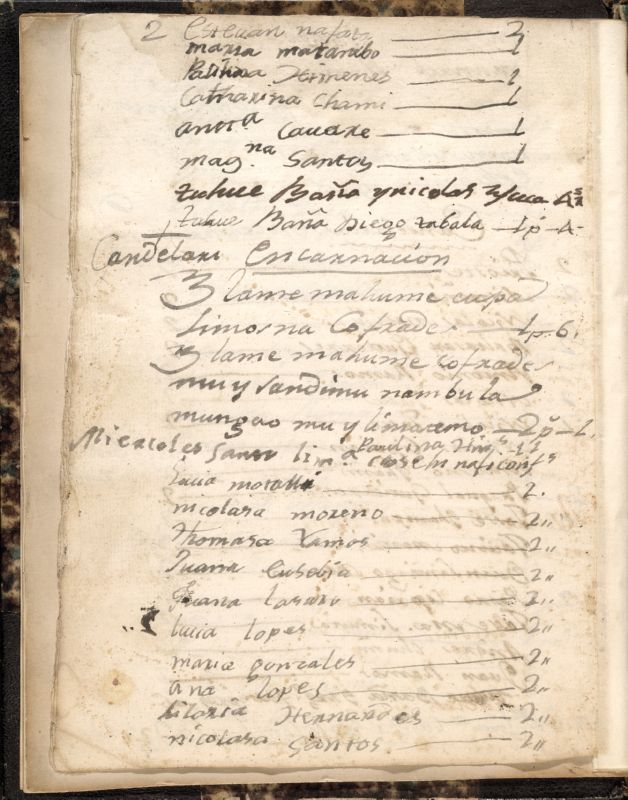 2 estevan nafat 2
maria matambo 1
Paulina Ximenes 1
Catharina Chami 1
antt.a Cauaxe 1
mag.na Santos 1
zuhue Baña y nicolas
zuhue Baña Diego zabala 1 p 4
Candelari encarnacion
lame mahume cupa
Limosna Cofrades 1 p. 6.
lame mahume cofrades
muy sandimu nambula
mungao muy limaremo 2 p 1
Miercoles Santo lim.a Paulina
Lucia 2.
nicolasa moreno 2,,
Thomasa Ramos 2,,
Juana Eusebia 2,,
Juana Lasaro 2,,
Lucia Lopes 2,,
maria gonzales 2,,
ana lopes 2,,
hilaria Hernandes 2,,
nicolasa Santos 2,,